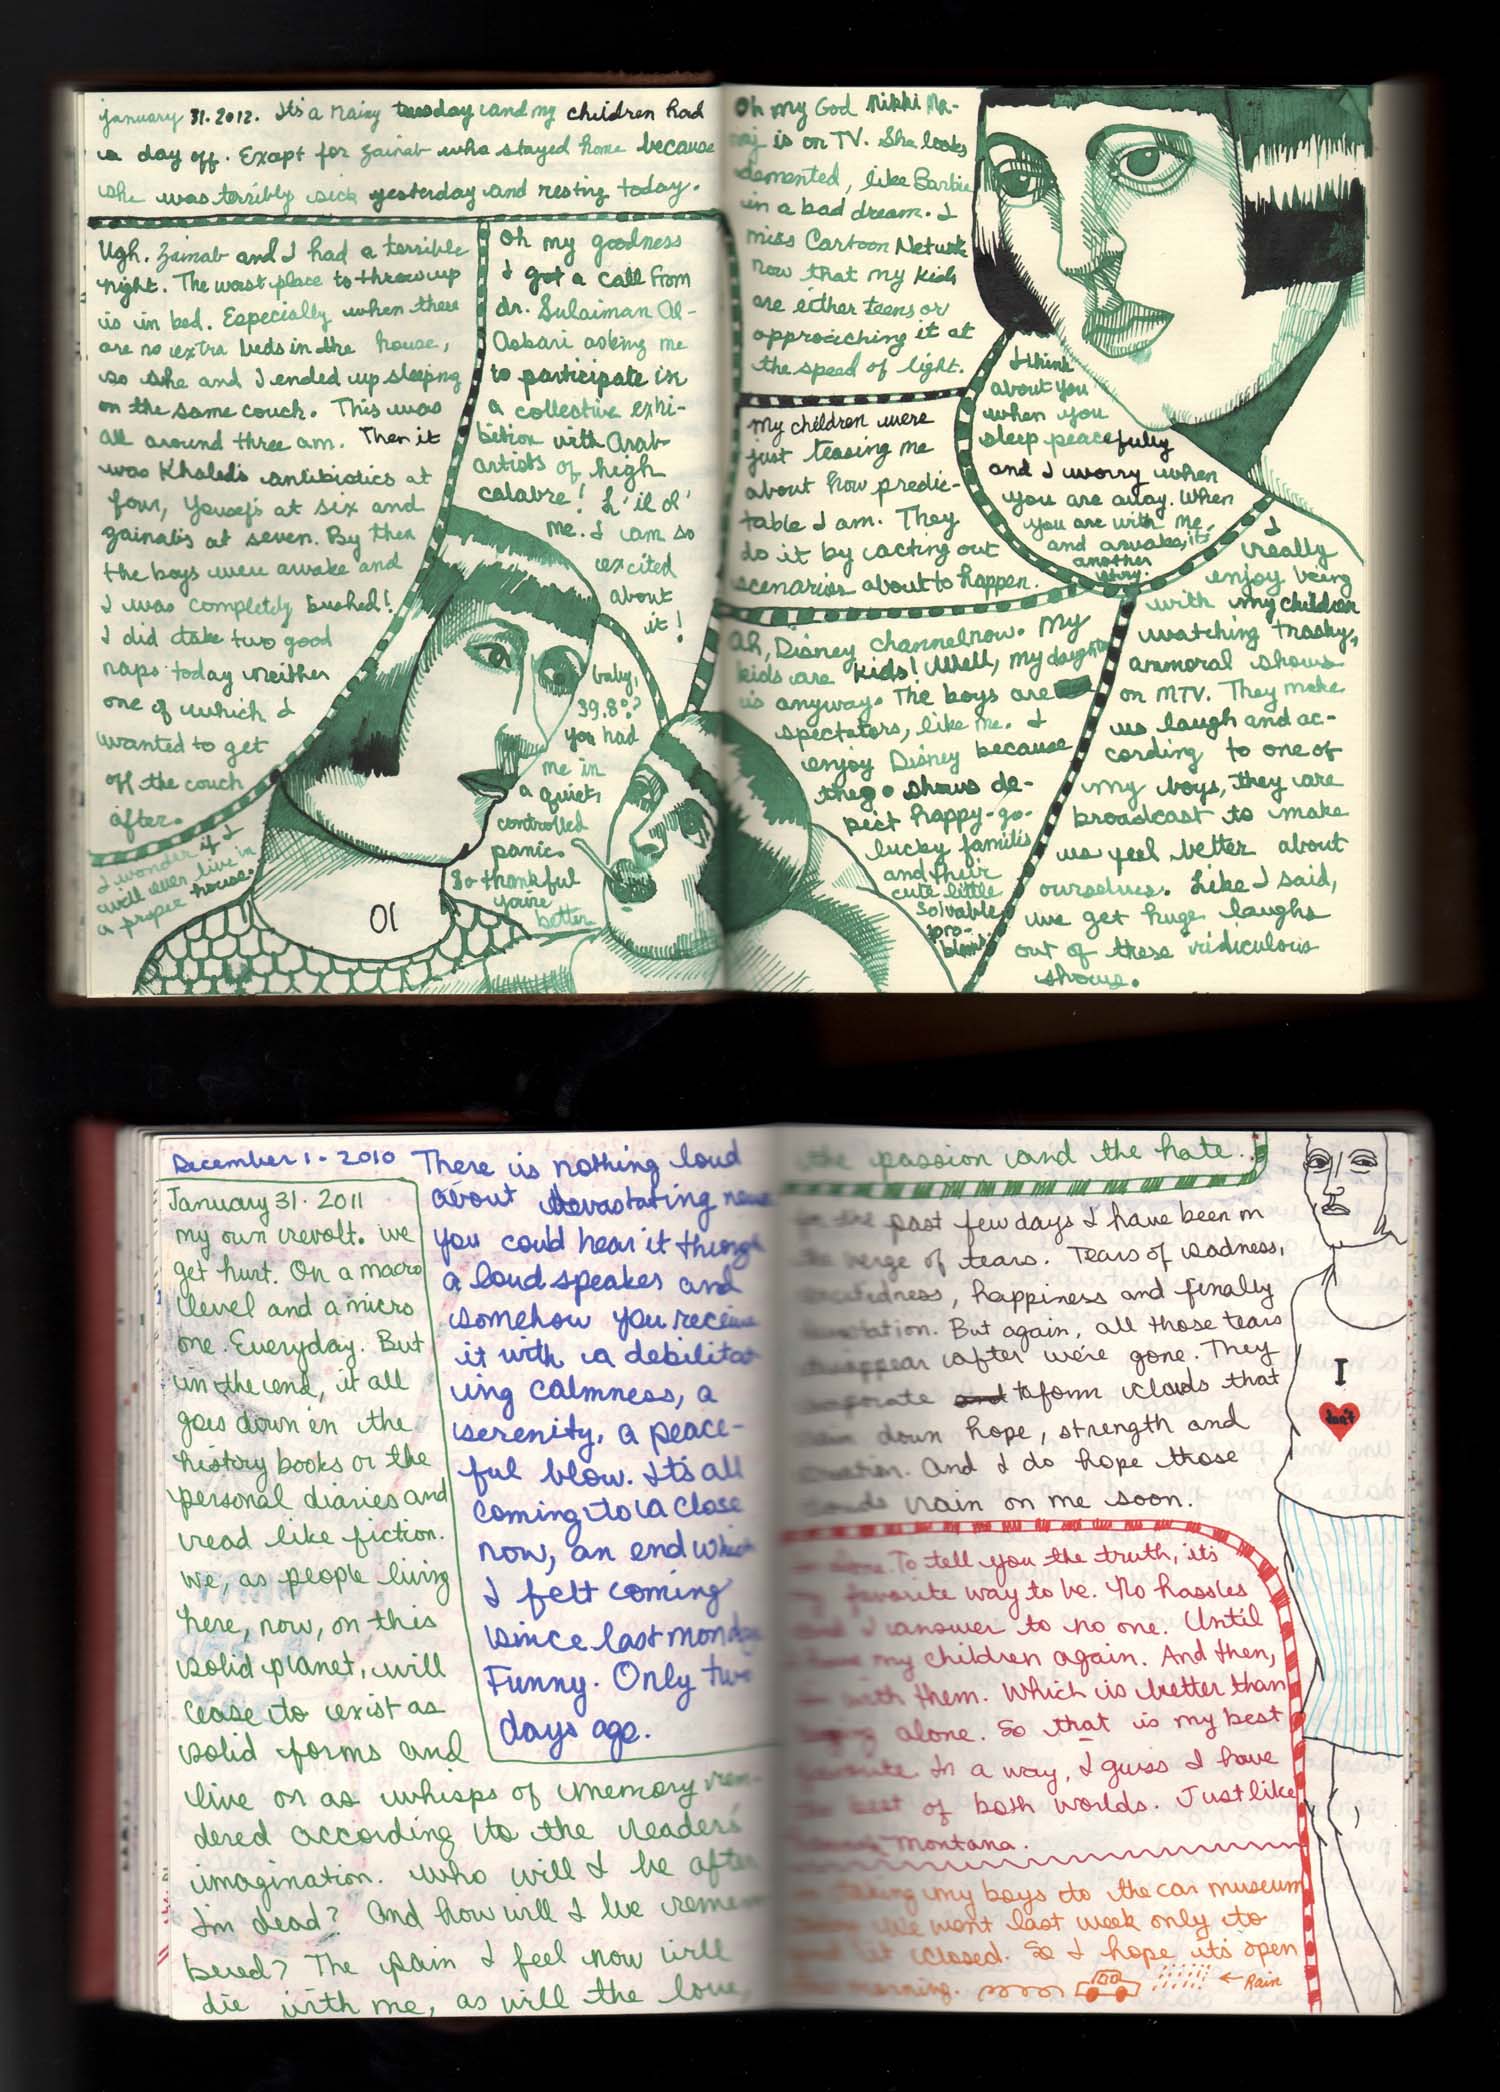 january 31. 2012. It's a rainy tuesday and my children had
a day off. Exapt for zainab who stayed home because
she was terribly sick yesterday and resting today.
Ugh. Zainab and I had a terrible
night. The worst place to throw up
is in bed. Especially when there
are no extra beds in the house,
so she and I ended up sleeping
on the same couch. This was
all around three am. Then it
was Khaled's antibiotics at
four, Yousef's at six and
zainab's at seven. By then
the boys were awake and
I was completely bushed!
I did take two good
naps today neither
one of which I
wanted to get
off the couch
after.
I wonder if I
will ever live in
a proper house.
Oh my goodness
I got a call from
dr. Sulaiman Al-
Askari asking me
to participate in
a collective exhi-
bition with Arab
artists of high
calabre! L'il ol'
me. I am so
excited
about
it!
baby,
39.8°?
you had
me in
a quiet,
controlled
panic.
So thankful
you're
better
01
Oh my God Nikki Mi-
naj is on TV. She looks
demented, like Barbie
in a bad dream. I
miss Cartoon Network
now that my kids
are either teens or
approaching it at
the speed of light.
my children were
just teasing me
about how predic-
table I am. They
do it by acting out
scenarios about to happen.
I think
about you
when you
sleep peacefully
and I worry when
you are away. When
you are with me,
and awake, it's
another
story.
Ah, Disney channel now. My
kids are kids! Well, my daughter
is anyway. The boys are
spectators, like me. I
enjoy Disney because
the shows de-
pict happy-go-
lucky families
and their
cute little
solvable
pro-
blems.
I
really
enjoy being
with my children
watching trashy,
ammoral shows
on MTV. They make
us laugh and ac-
cording to one of
my boys, they are
broadcast to make
us feel better about
ourselves. Like I said,
we get huge laughs
out of these ridiculous
shows.
December 1 - 2010
January 31. 2011
my own revolt. we
get hurt. On a macro
level and a micro
one. Everyday. But
in the end, it all
goes down in the
history books or the
personal diaries and
read like fiction.
we, as people living
here, now, on this
solid planet, will
cease to exist as
solid forms and
live on as whisps of memory ren-
dered according to the readers'
imagination. who will I be after
I'm dead? And how will I be remem
bered? The pain I feel now will
die with me, as will the love,
There is nothing loud
about devastating news
you could hear it through
a loud speaker and
somehow you receive
it with a debilitat
ing calmness, a
serenity, a peace-
ful blow. It's all
coming to a close
now, an end which
I felt coming
since last monday
Funny. Only two
days ago.
the passion and the hate.
for the past few days I have been on
the verge of tears. Tears of sadness,
excitedness, happiness and finally
But again, all those tears
disappear after we're gone. They
evaporate and to form clouds that
rain down hope, strength and
And I do hope those
clouds rain on me soon.
alone. To tell you the truth, it's
my favorite way to be. No hassles
and I answer to no one. Until
I have my children again. And then,
with them. Which is better than
being alone. So that is my best
favorite. In a way, I guess I have
the best of both worlds. Just like
Hannah Montana.
taking my boys to the car museum
We went last week only to
find it closed. So I hope it's open
this morning.
← Rain
I
don't